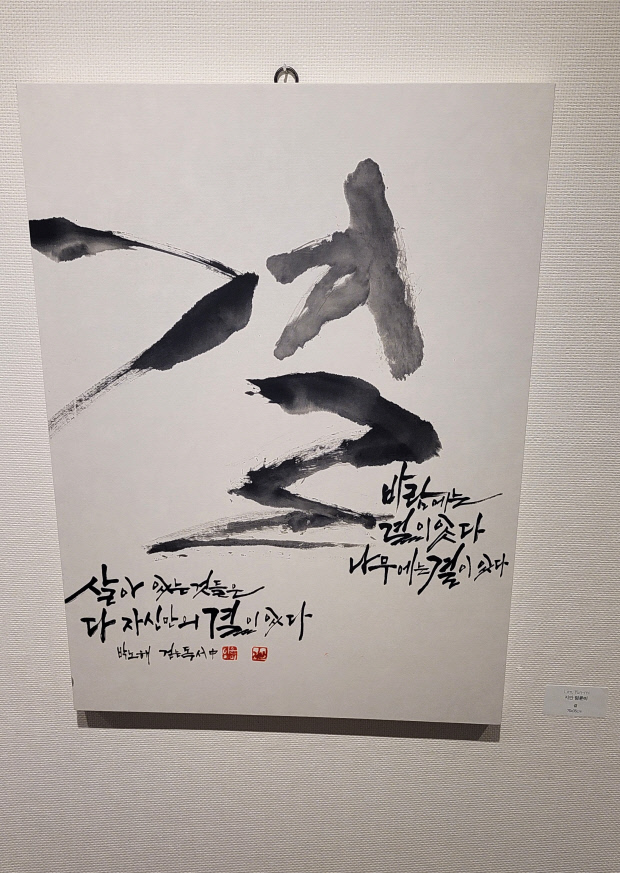 결
바람에는
결이 있다
나무에는 결이 있다
살아 있는 것들은
다 자신만의 결이 있다
박노해 걷는독서 中
결